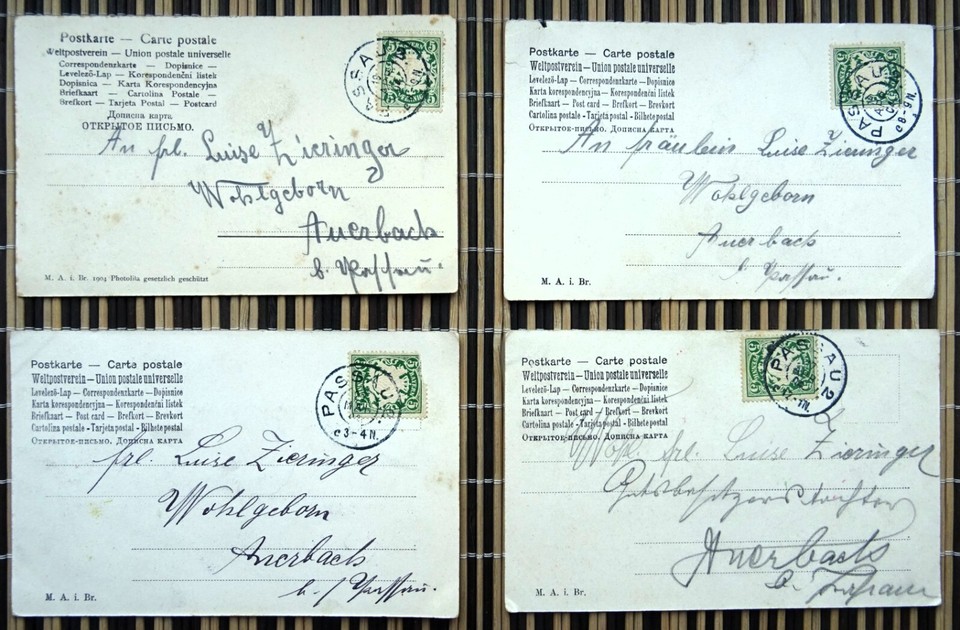 Postkarte — Carte postale
Weltpostverein — Union postale universelle
Correspondenzkarte — Dopisnice —
Levelező-Lap — Korespondenční listek
Dopisnica — Karta Korespondencyjna
Briefkaart — Cartolina Postale —
Brefkort — Tarjeta Postal — Postcard
Дописна карта
ОТКРЫТОЕ ПИСЬМО.
PASSAU
5
An frl. Luise Zieringer
Wohlgeborn
Auerbach
b. Passau.
M. A. i. Br. 1904 Photolila gesetzlich geschützt
Postkarte — Carte postale
Weltpostverein — Union postale universelle
Levelező-Lap — Correspondenzkarte — Dopisnice
Karta korespondencyjna — Korespondenční listek
Briefkaart — Post card — Brefkort — Brevkort
Cartolina postale - Tarjeta postal - Bilhete postal
Открытое-письмо. Дописна карта
PASSAU
8-9N.
An fräulein Luise Zieringer
Wohlgeborn
Auerbach
b. Passau.
M. A. i. Br.
Postkarte — Carta postale
Weltpostverein — Union postale universelle
Levelező-Lap — Correspondenzkarte — Dopisnice
Karta korespondencyjna — Korespondenční listek
Briefkaart — Post card — Brefkort — Brevkort
Cartolina postale - Tarjeta postal - Bilhete postal
Открытое-письмо. Дописна карта
PASSAU
3-4N.
frl. Luise Zieringer
Wohlgeborn
Auerbach
b. / Passau.
M. A. i. Br.
Postkarte — Carte postale
Weltpostverein — Union postale universelle
Levelező-Lap — Correspondenzkarte — Dopisnice
Karta korespondencyjna — Korespondenční listek
Briefkaart — Post card — Brefkort — Brevkort
Cartolina postale - Tarjeta postal - Bilhete postal
Открытое-письмо. Дописна карта
PASSAU 2
frl. Luise Zieringer
Gutsbesitzerstochter
Auerbach
b. Passau
M. A. i. Br.